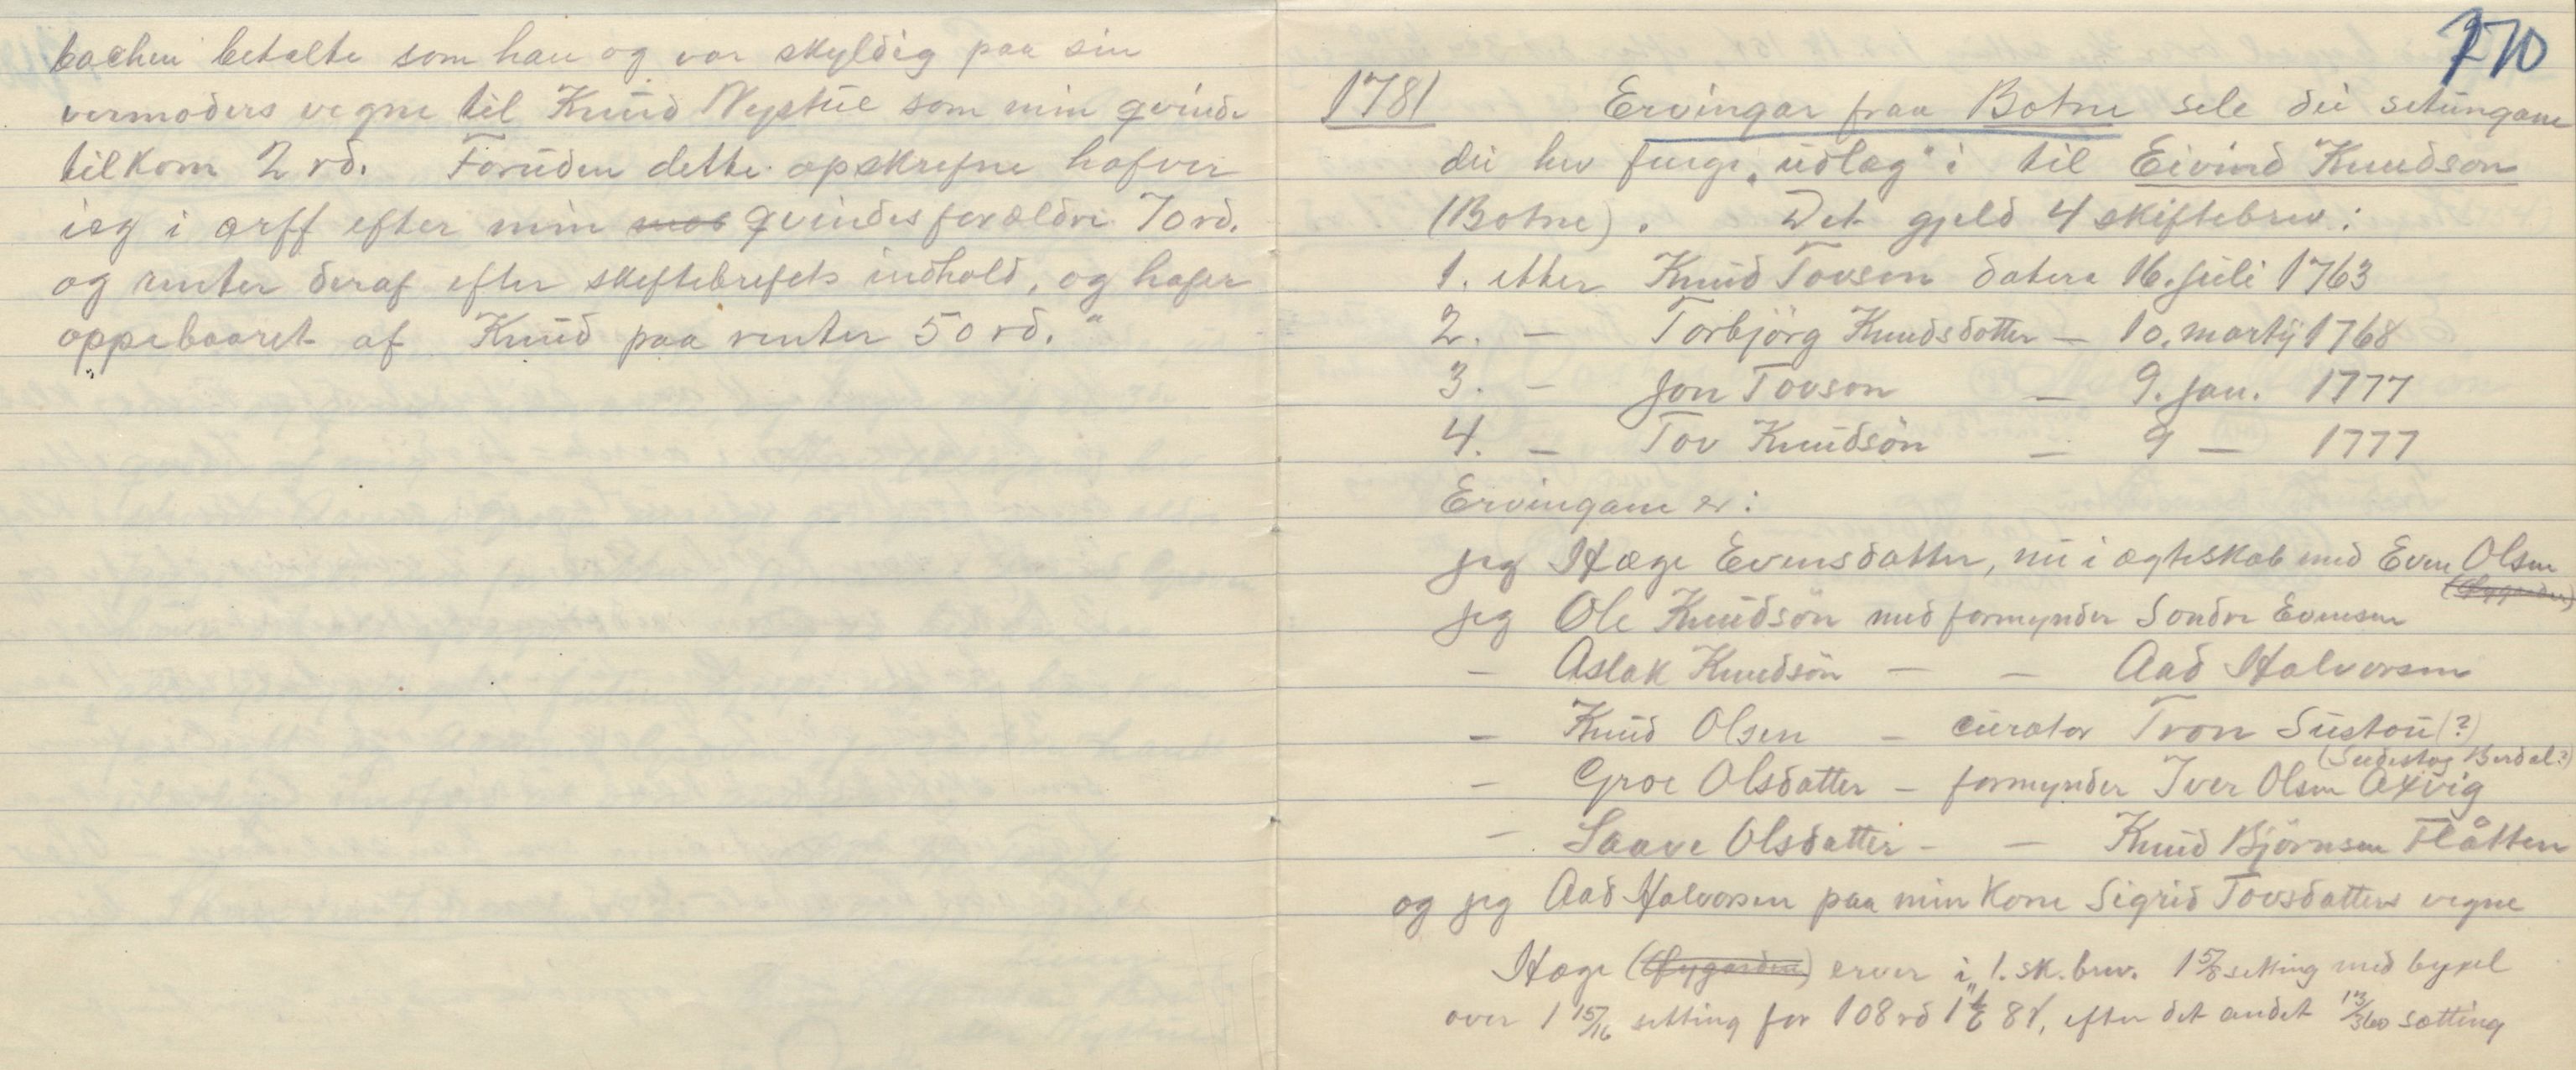 bachen betalte som han og var skyldig paa sin
vermoders vegne til Knud Nystul som min qvinde
tilkom 2 rd. Foruden dette opskrefne hafver
ieg i arff efter min qvindes forældre 70 rd.
og renter deraf efter skeftebrefets indhold, og hafer
oppebaaret af Knud paa renter 50 rd."
270
1781 Ervingar fraa Botne sele dei setungane
dei hev fenge "udlæg" i til Eivind Knudson
(Botne). Det gjeld 4 skiftebrev:
1. etter Knud Tovsen datera 16. juli 1763
2. — Torbjörg Knudsdotter — 10. martij 1768
3. — Jon Tovson — 9. jan. 1777
4. — Tov Knudsön — 9 — 1777
Ervingane er:
jeg Hæge Evensdatter, nu i ægteskab med Even Olsen
jeg Ole Knudsön med formynder Sondre Evensen
— Aslak Knudsön — — Aad Halvorsen
— Knud Olsen — curator Tron Sustou (?)
(Sudistog Berdal?)
— Groe Olsdatter — formynder Iver Olsen Axvig
— Saave Olsdatter — — Knud Björnsen Flåtten
og jeg Aad Halvorsen paa min kone Sigrid Tovsdatters vegne
Hæge (Nygarden) erver i "1. sk. brev. 1 5/8 setting med bygsel
over 1 15/16 setting for 108 rd 1 ₰ 8 ß, efter det andet 13/360 sætting